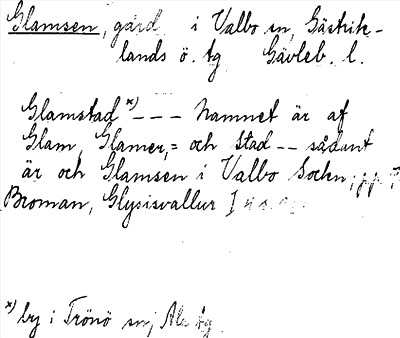 Glamsen, gård i Valbo sn, Gästrik-
lands ö. tg Gävleb. l.
Glamstad x) - - - Namnet är af
Glam, Glamer, = och stad - - sådant
är och Glamsen i Valbo Sockn;
Broman, Glysisvallur I
x) by i Trönö sn, Ala tg